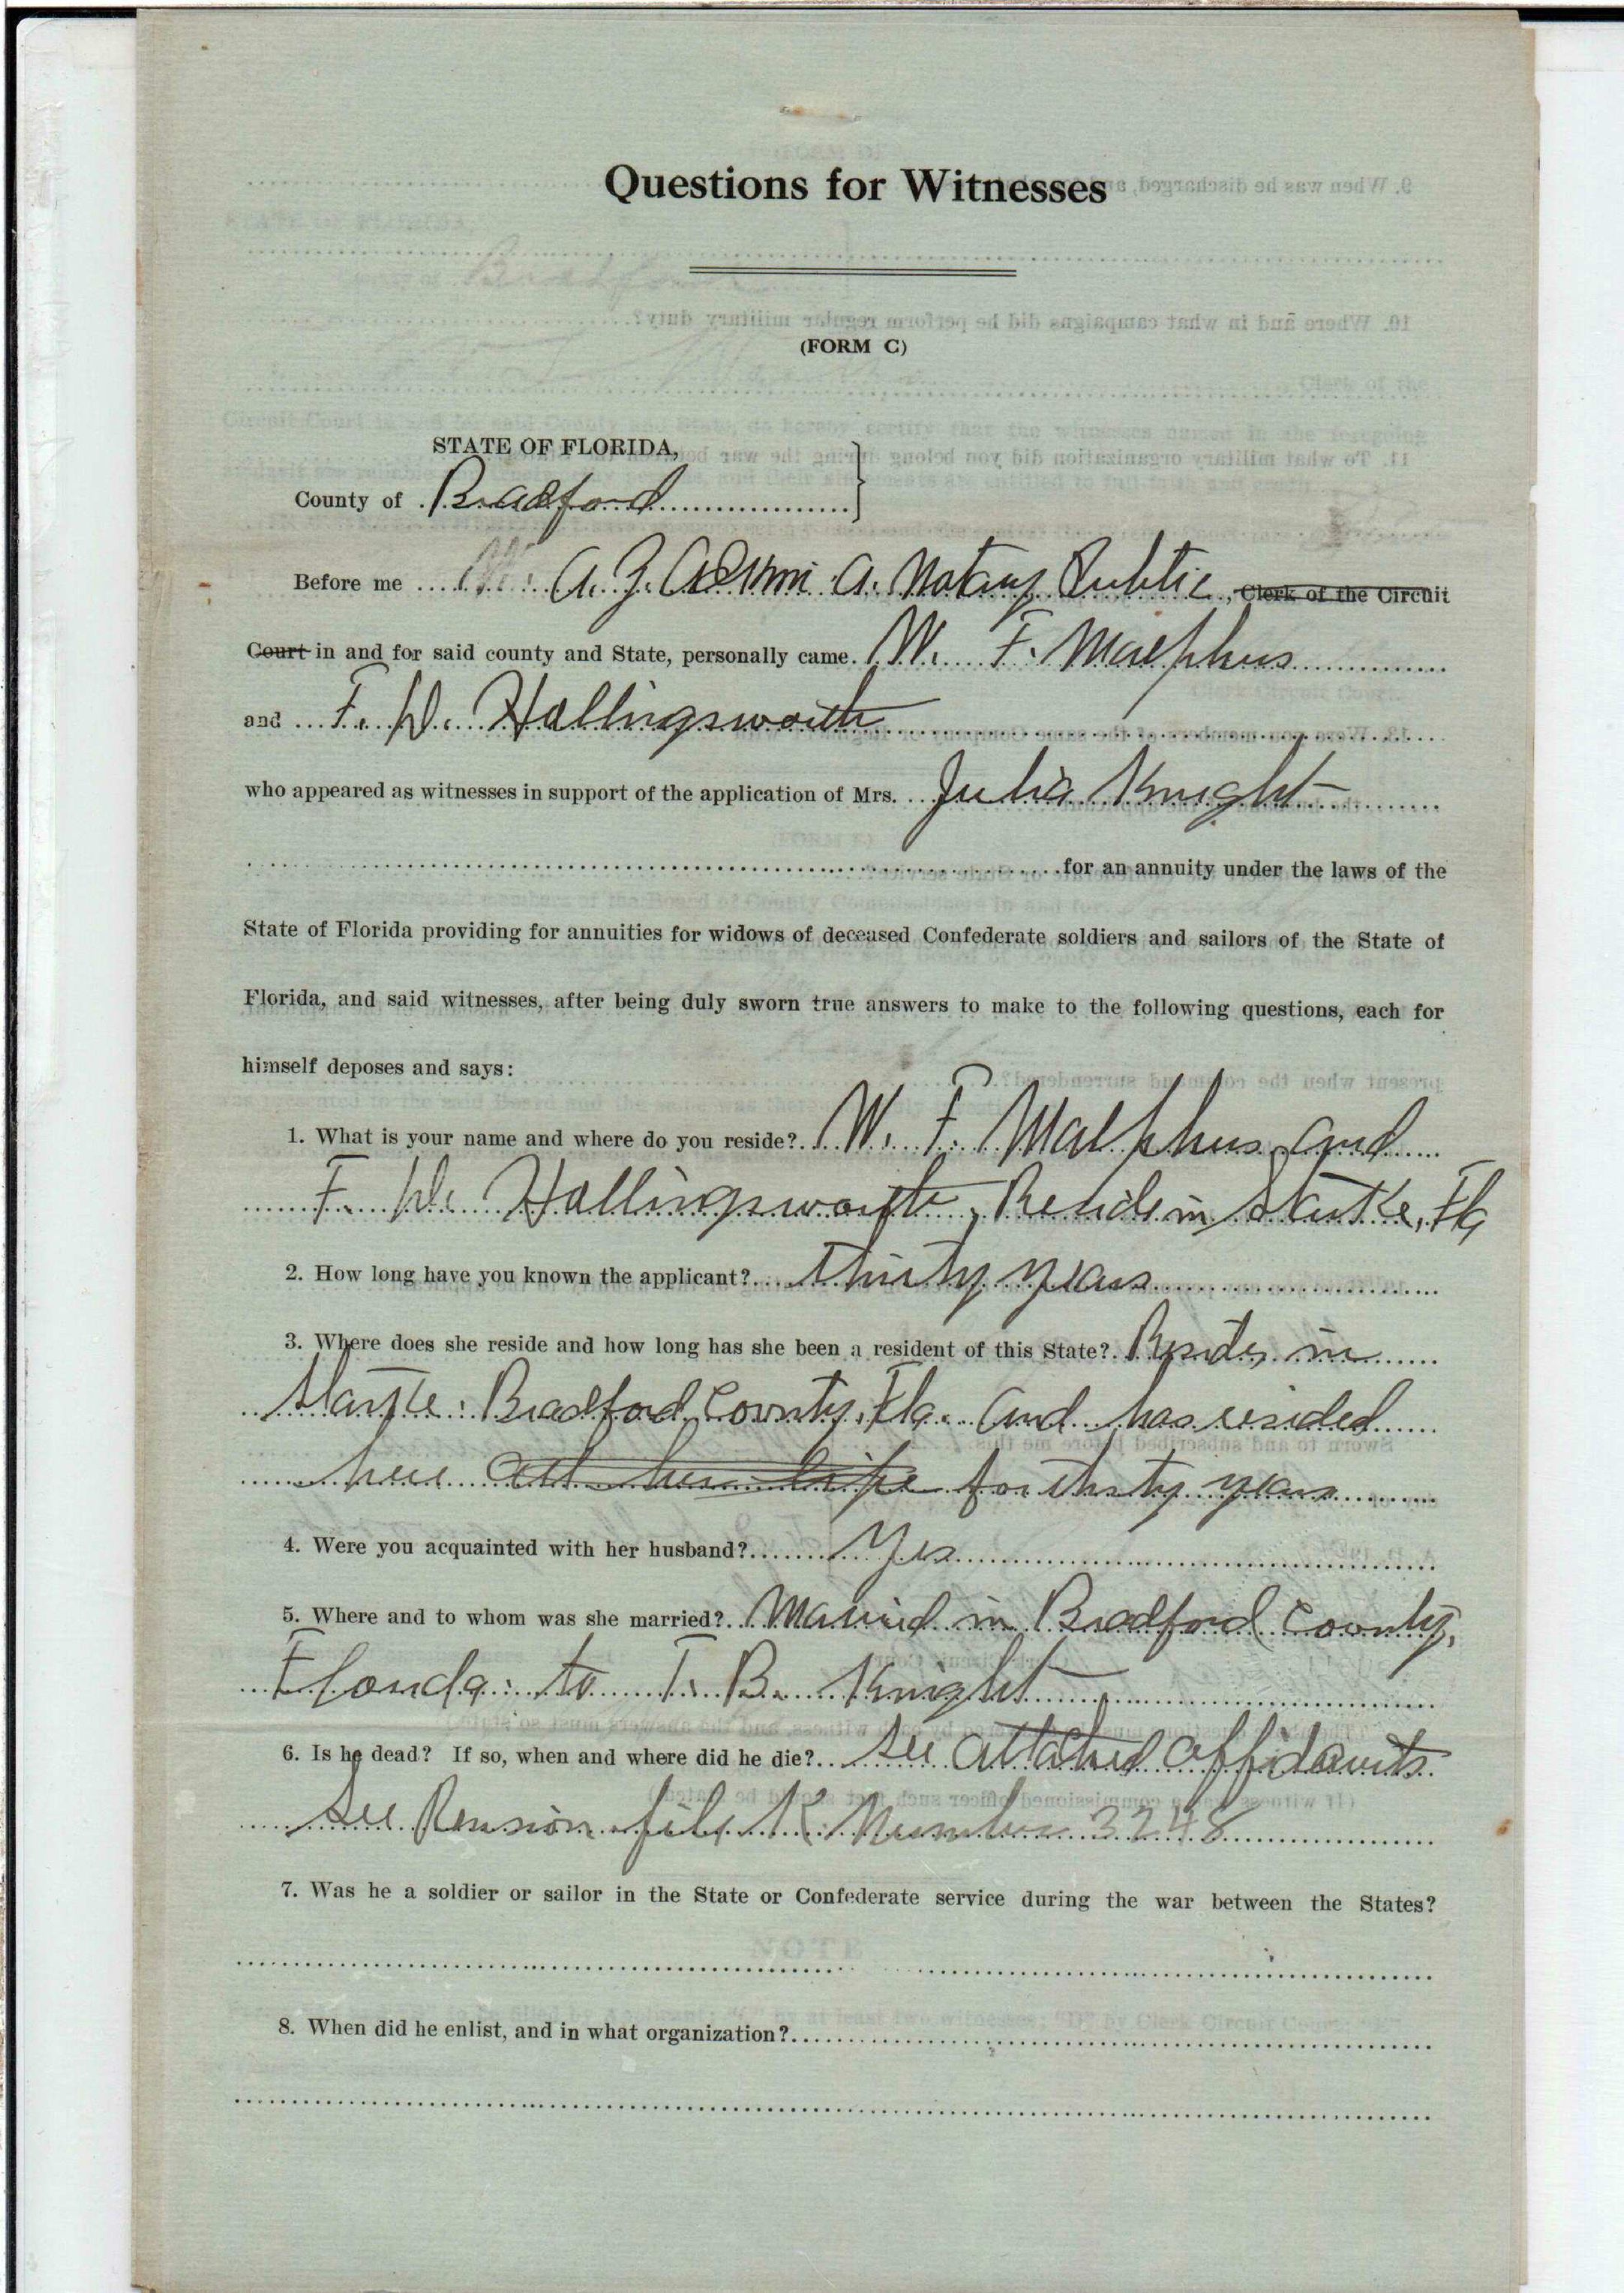 Questions for Witnesses
(FORM C)
STATE OF FLORIDA,
County of Bradford
Before me A. Z. Adkins a Notary Public, Clerk of the Circuit
Court in and for said county and State, personally came W. F. Malphus
and F. W. Hollingsworth
who appeared as witnesses in support of the application of Mrs. Julia Knight
for an annuity under the laws of the
State of Florida providing for annuities for widows of deceased Confederate soldiers and sailors of the State of
Florida, and said witnesses, after being duly sworn true answers to make to the following questions, each for
himself deposes and says:
1. What is your name and where do you reside? W. F. Malphus and
F. W. Hollingsworth, Reside in Starke, Fla
2. How long have you known the applicant? thirty years
3. Where does she reside and how long has she been a resident of this State? Resides in
Starke, Bradford County, Fla. and has resided
here all her life for thirty years
4. Were you acquainted with her husband? Yes
5. Where and to whom was she married? Married in Bradford County,
Florida, to T. B. Knight
6. Is he dead? If so, when and where did he die? See attached affidavits
See Pension file K Number 3248
7. Was he a soldier or sailor in the State or Confederate service during the war between the States?
8. When did he enlist, and in what organization?